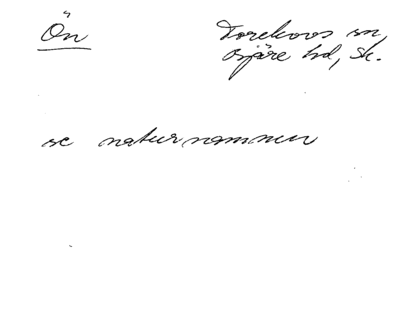 Ön
Torekovs sn,
Bjäre hd, Sk.
se naturnamnen